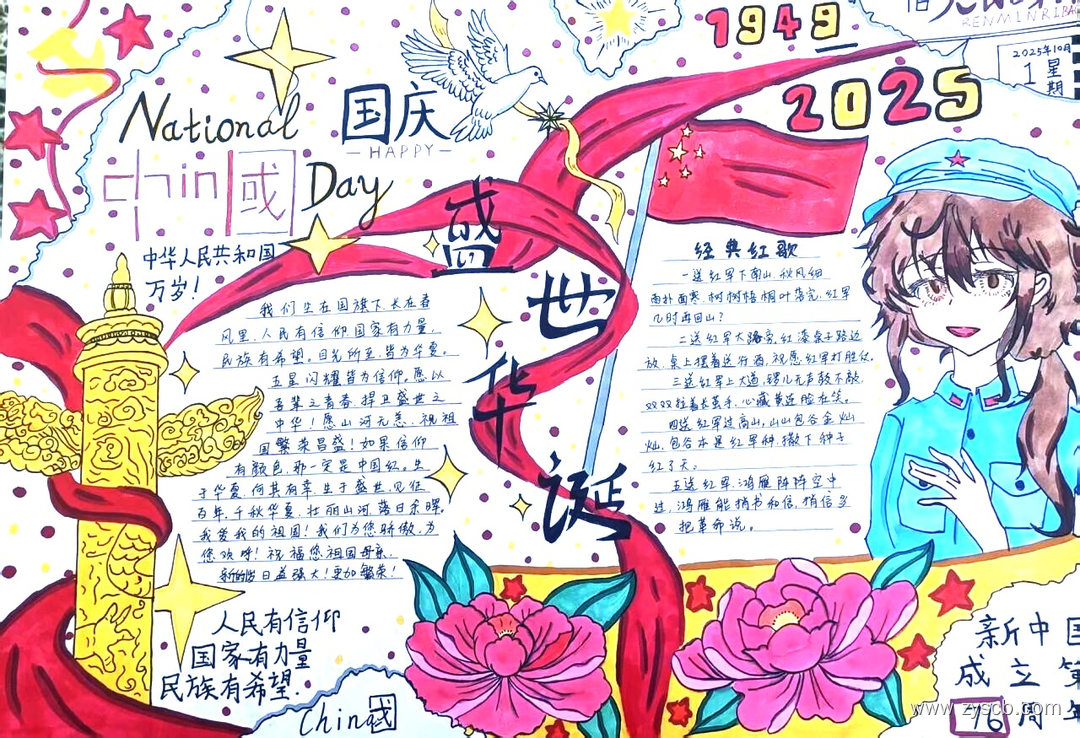 1949
2025
RENMINRIBAO
2025年10月
1 星期
National
国庆
HAPPY
chin國
Day
中华人民共和国
万岁!
盛世华诞
我们生在国旗下,长在春
风里,人民有信仰国家有力量,
民族有希望。目光所至皆为华夏。
五星闪耀皆为信仰,愿以
吾辈之青春,捍卫盛世之
中华!愿山河无恙,祝祖
国繁荣昌盛!如果信仰
有颜色,那一定是中国红。生
于华夏,何其有幸,生于盛世,见证
百年,千秋华夏,壮丽山河,落日余晖。
我爱我的祖国!我们为您骄傲,为
您欢呼!祝福您祖国母亲,
新的岁日益强大!更加繁荣!
经典红歌
一送红军下南山,秋风细
雨扑面寒,树树梧桐叶落完,红军
几时再回山?
二送红军大路旁,红漆桌子路边
放,桌上摆着送行酒,祝愿红军打胜仗。
三送红军上大道,锣儿无声鼓不敲,
双双拉着长茧手,心藏黄连脸在笑。
四送红军过高山,山山包谷金灿
灿,包谷本是红军种,撒下种子
红了天。
五送红军,鸿雁阵阵空中
过,鸿雁能捎书和信,捎信多
把革命说。
人民有信仰
国家有力量
民族有希望.
Chin國
新中国
成立第
76周年
www.zyscb.com